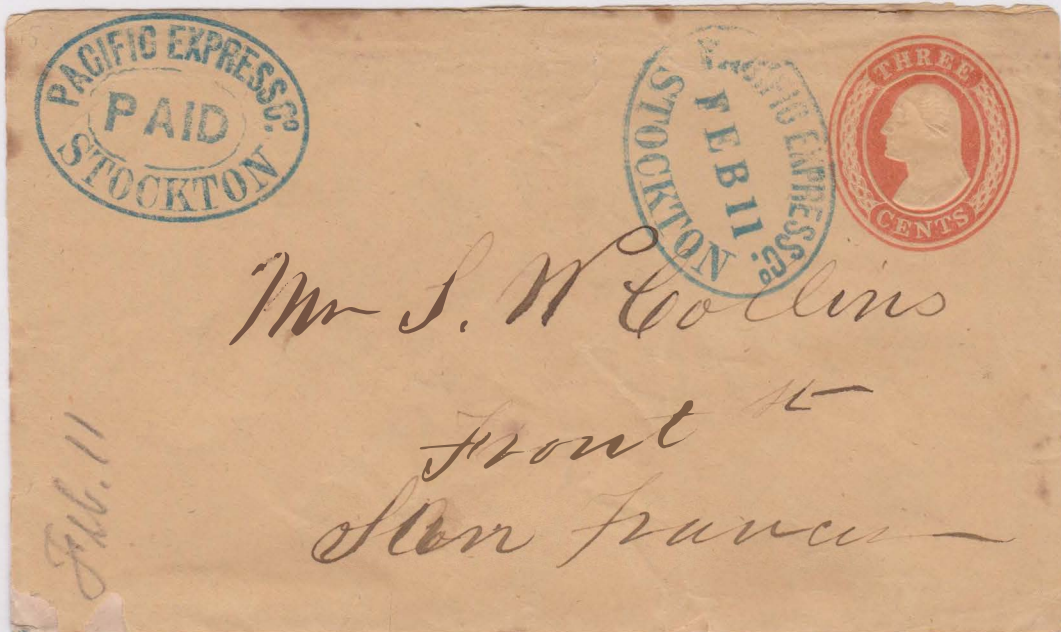 PACIFIC EXPRESS Co.
PAID
STOCKTON
PACIFIC EXPRESS Co.
FEB 11
STOCKTON
THREE
CENTS
Mr S. W Collins
Front st
San Francis
Feb. 11